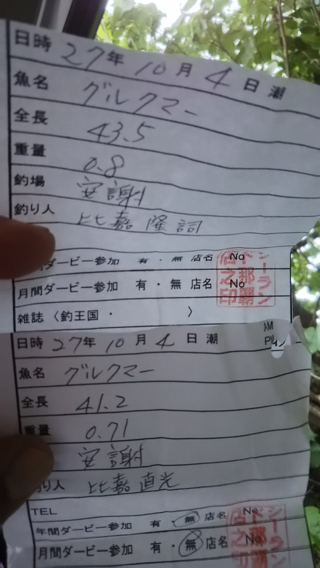 日時 27年 10月 4日 潮
魚名 グルクマー
全長 43.5
重量 0.8
釣場 安謝
釣り人 比嘉 隆詞
ダービー参加 有・無 店名 No
月間ダービー参加 有・無 店名 No
雑誌〈釣王国・ 〉
日時 27年 10月 4日 潮
魚名 グルクマー
全長 41.2
重量 0.71
安謝
り人 比嘉 直光
TEL
年間ダービー参加 有・無 店名 No
月間ダービー参加 有・無 店名 No